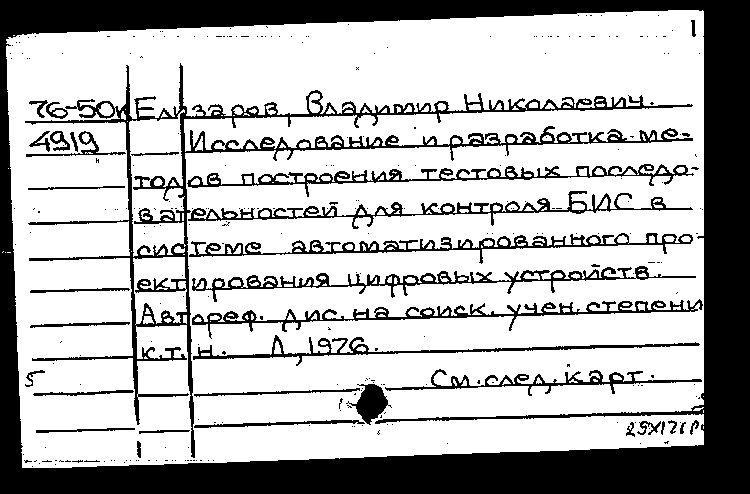 1
76-50к Елизаров, Владимир Николаевич.
4919 Исследование и разработка ме-
тодов построения тестовых последо-
вательностей для контроля БИС в
системе автоматизированного про-
ектирования цифровых устройств.
Автореф. дис. на соиск. учен. степени
к.т.н. Л, 1976.
5 См. след. карт.